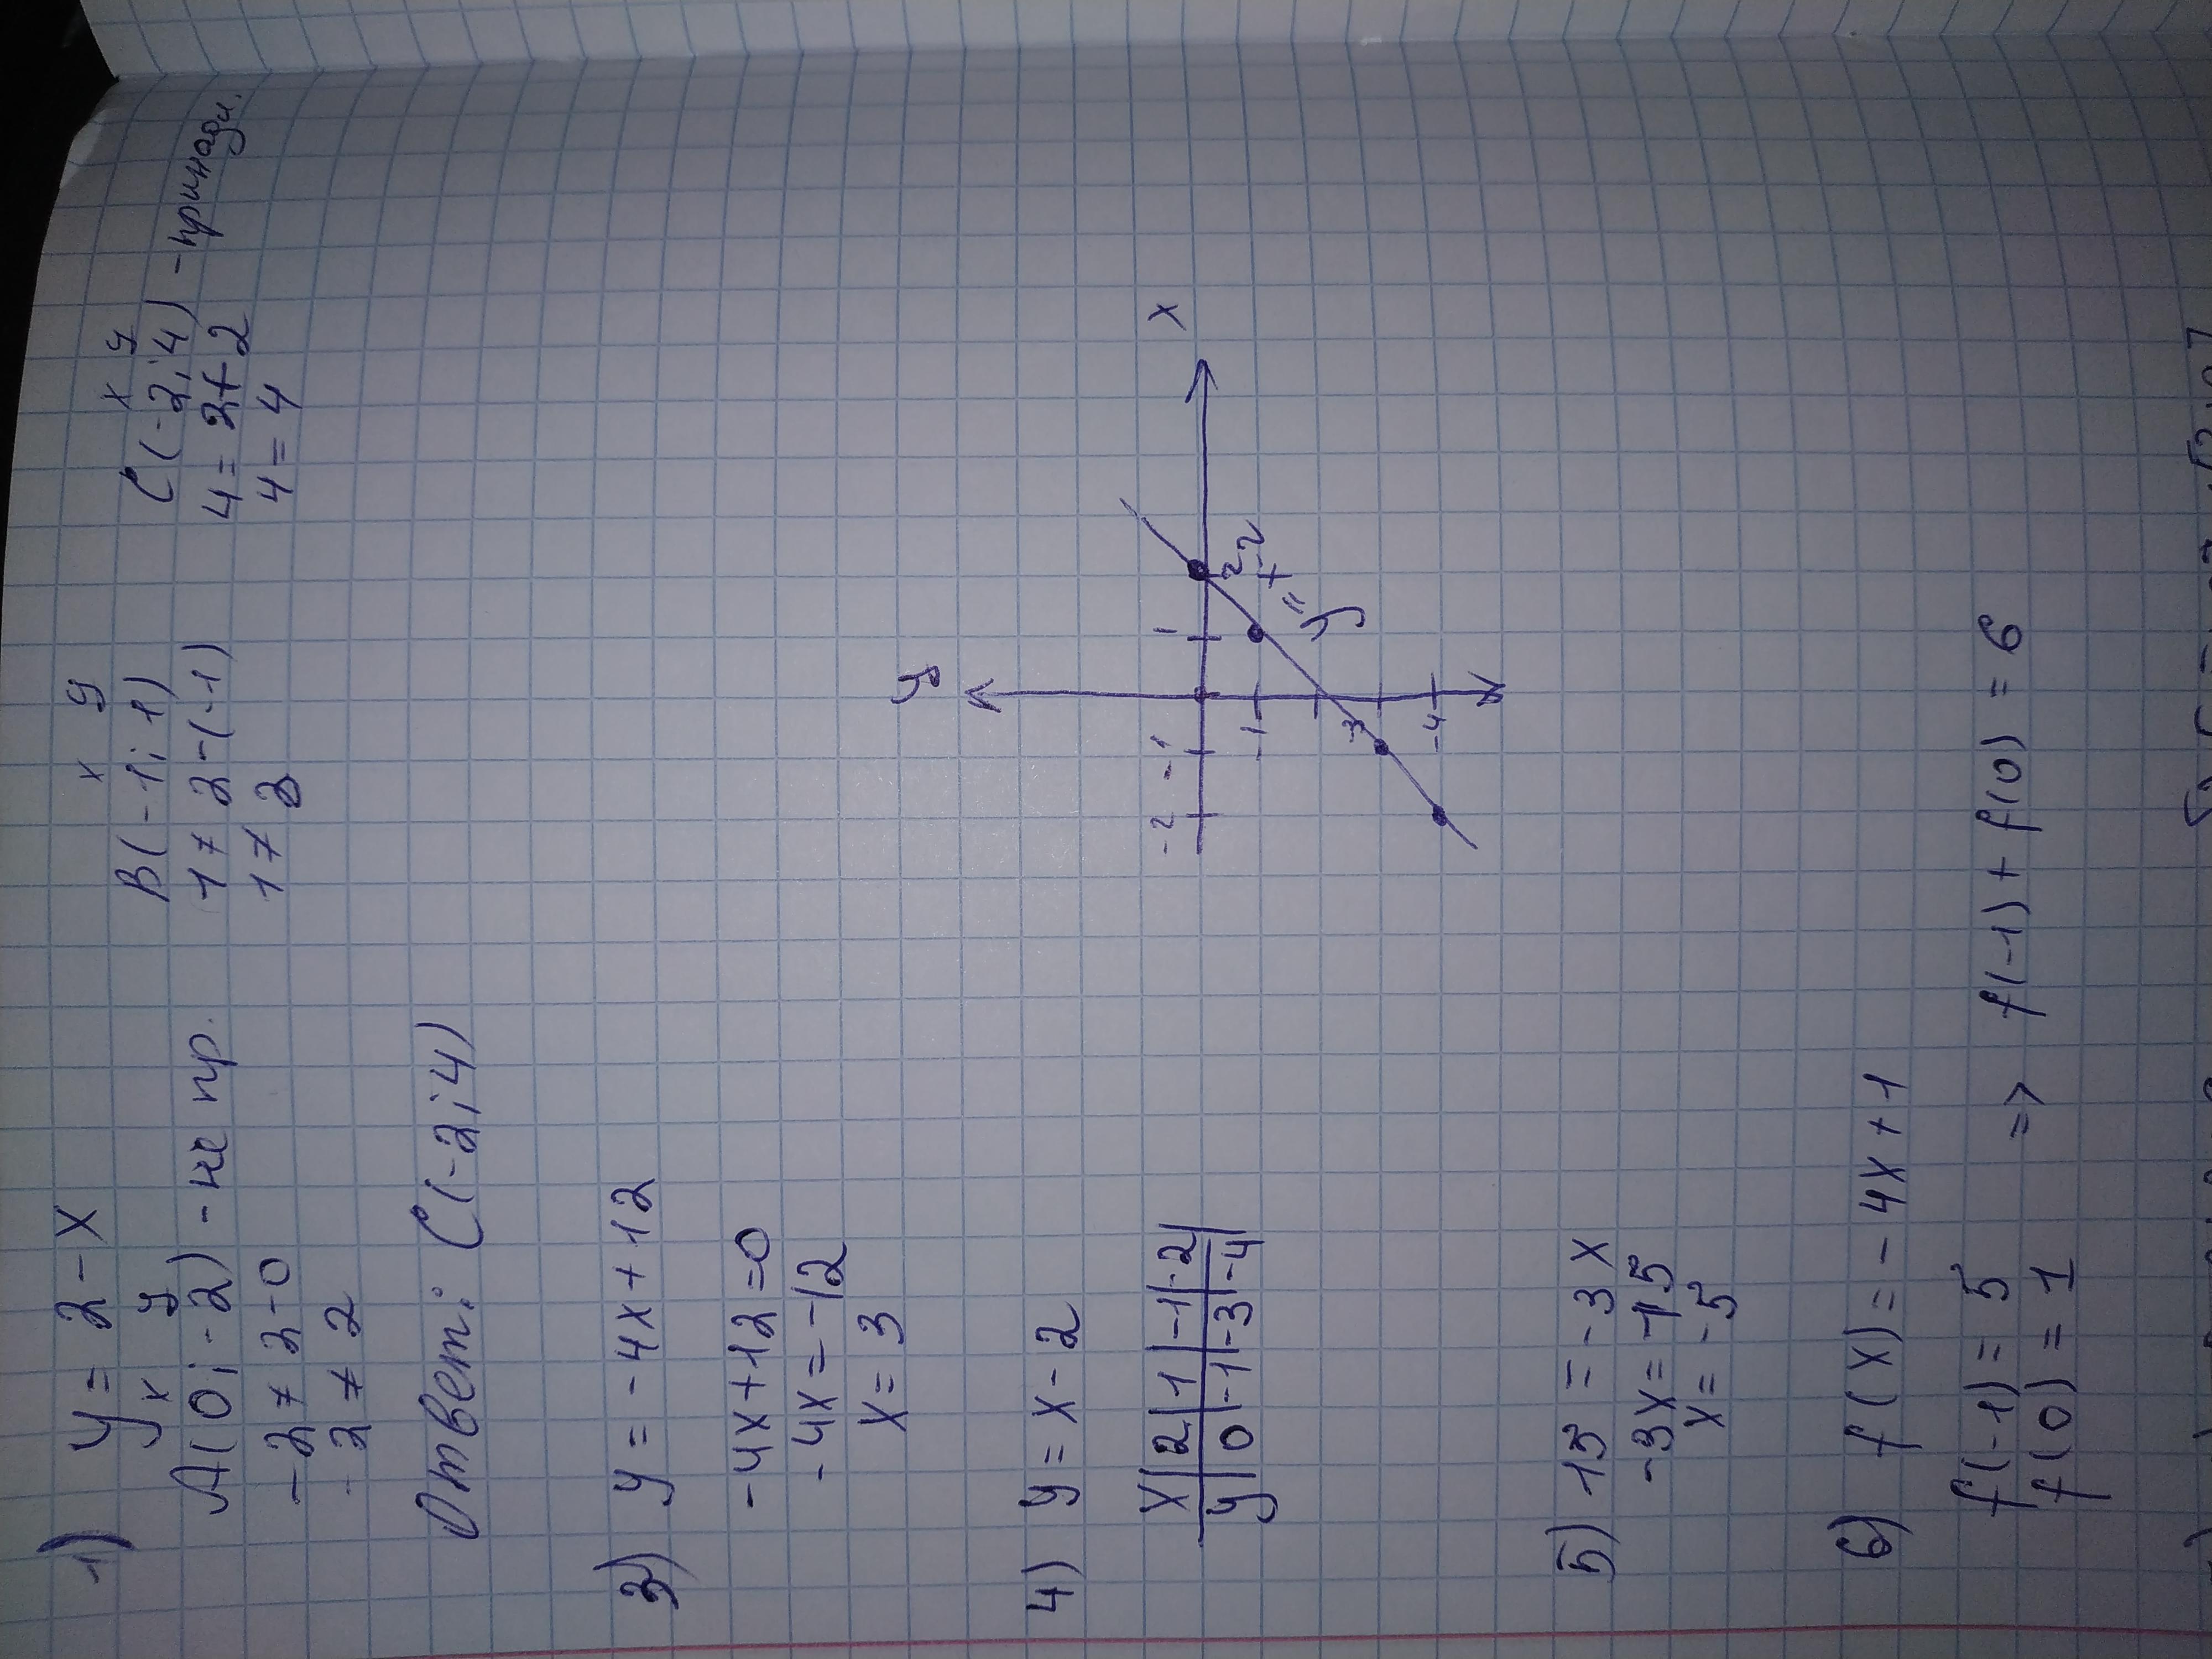 1) y = 2 - x
y
x y
A(0; -2) - не пр.
-2 ≠ 2-0
-2 ≠ 2
x y
B(-1; 1)
1 ≠ 2-(-1)
1 ≠ 3
x y
C(-2; 4) - принадл.
4 = 2+2
4 = 4
Ответ: C(-2; 4)
3) y = -4x + 12
-4x + 12 = 0
-4x = -12
x = 3
4) y = x - 2
x | 2 | 1 | -1 | -2
y | 0 | -1 | -3 | -4
y
x
-2 -1 1 2
-1
-3
-4
y = x - 2
5) 15 = -3x
-3x = 15
x = -5
6) f(x) = -4x + 1
f(-1) = 5
f(0) = 1
=> f(-1) + f(0) = 6